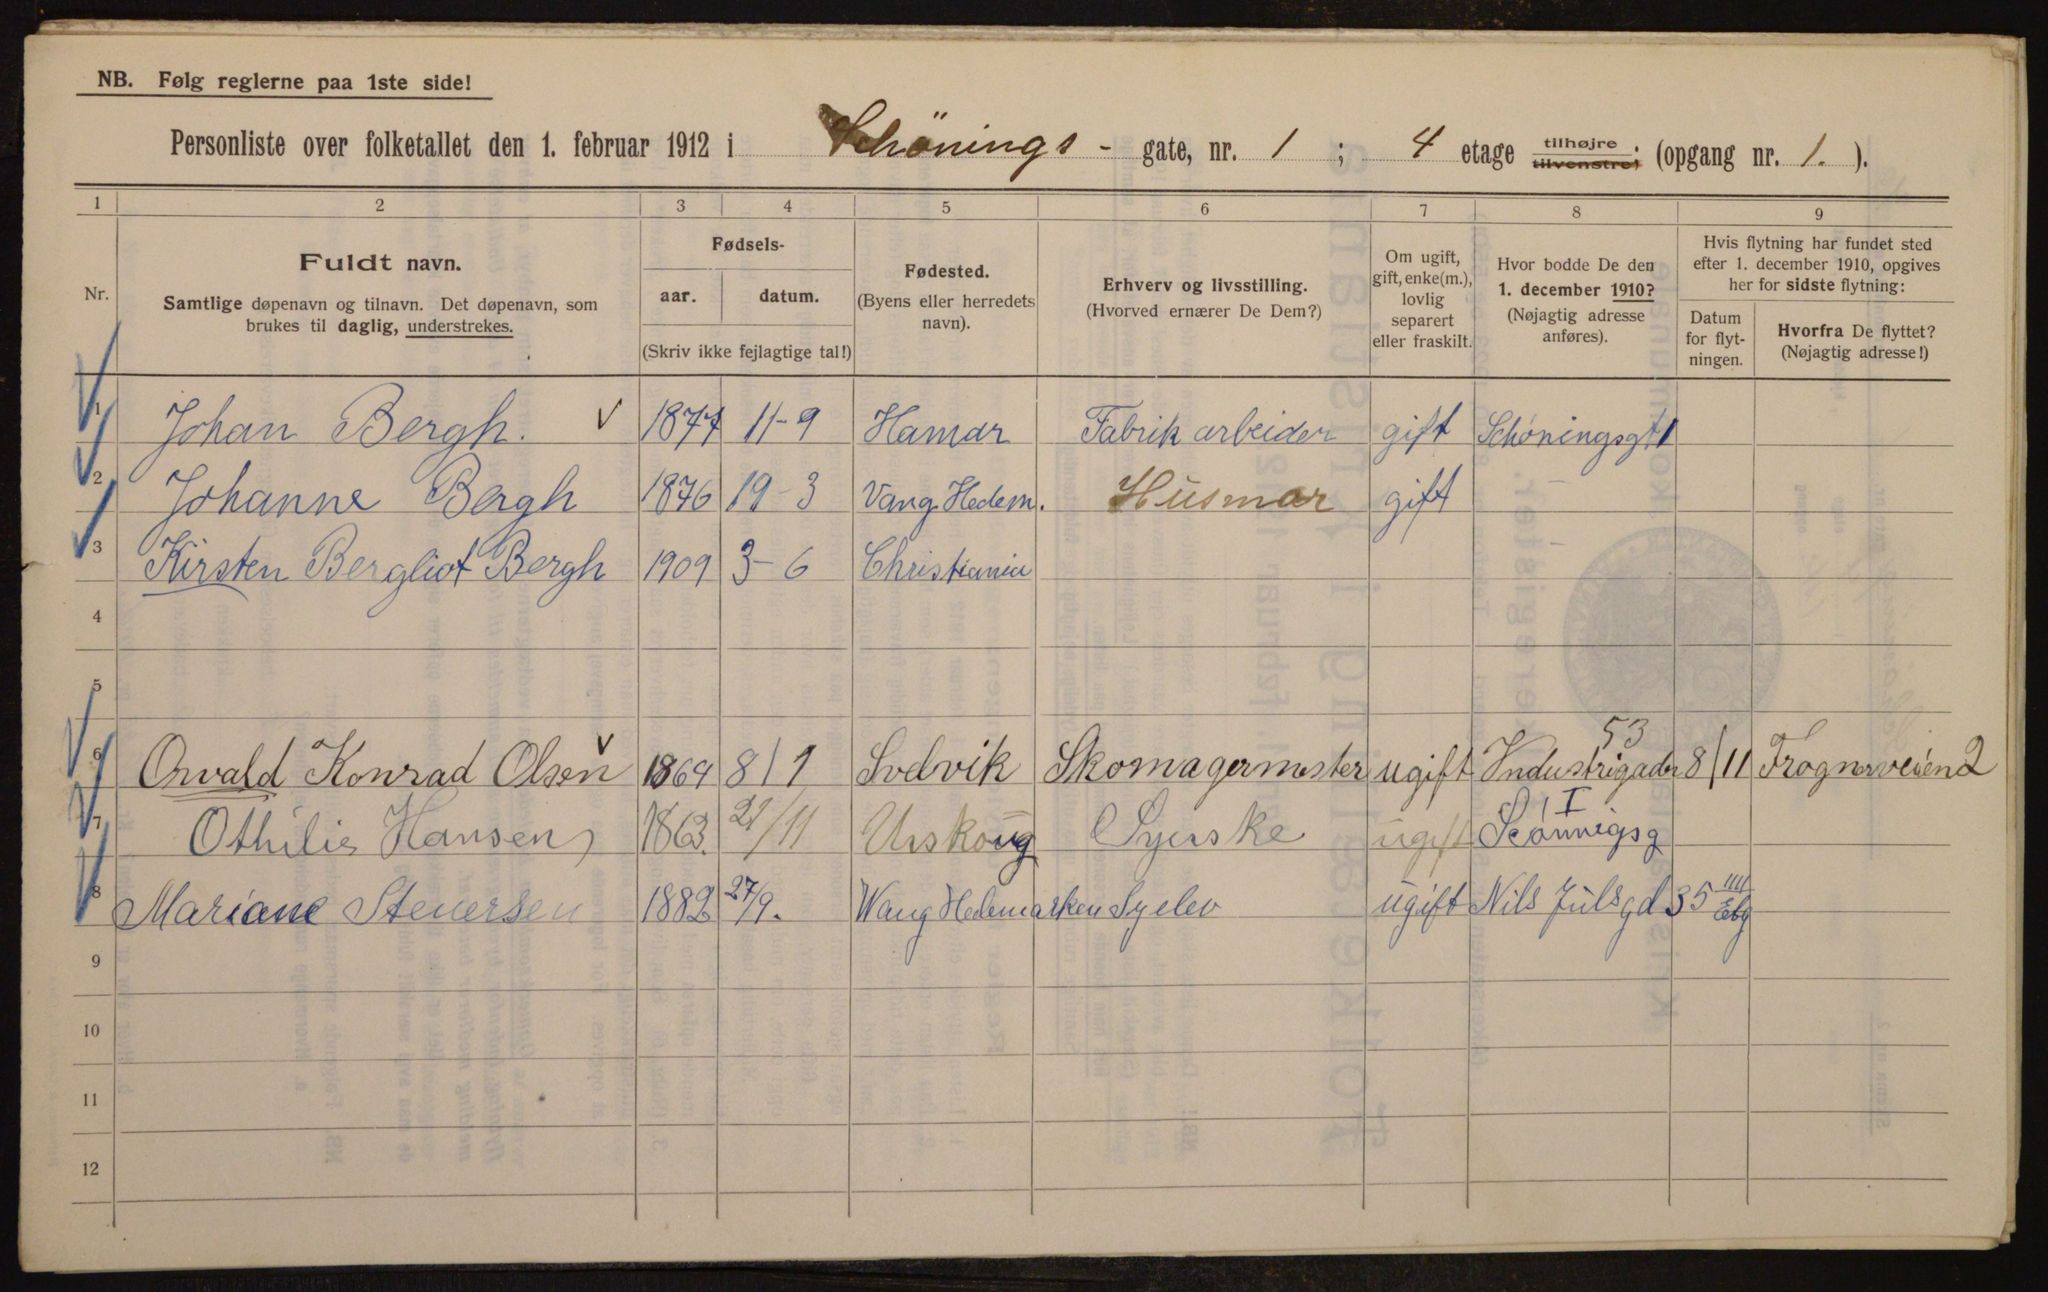 NB. Følg reglerne paa 1ste side!
Personliste over folketallet den 1. februar 1912 i Schönings - gate, nr. 1 ; 4 etage tilhøjre. tilvenstre; (opgang nr. 1. ).
1 2 3 4 5 6 7 8 9
Nr.
Fuldt navn.
Samtlige døpenavn og tilnavn. Det døpenavn, som
brukes til daglig, understrekes.
Fødsels-
aar. datum.
(Skriv ikke fejlagtige tal!)
Fødested.
(Byens eller herredets
navn).
Erhverv og livsstilling.
(Hvorved ernærer De Dem?)
Om ugift,
gift, enke(m.),
lovlig
separert
eller fraskilt.
Hvor bodde De den
1. december 1910?
(Nøjagtig adresse
anføres).
Hvis flytning har fundet sted
efter 1. december 1910, opgives
her for sidste flytning:
Datum
for flyt-
ningen.
Hvorfra De flyttet?
(Nøjagtig adresse!)
1 Johan Bergh. 1877 11-9 Hamar Fabrik arbeider gift Schöningsgt 1
2 Johanne Bergh 1876 19-3 Vang Hedem. Husmor gift
3 Kirsten Bergliot Bergh 1909 3-6 Christiania
4
5
53
6 Osvald Konrad Olsen 1869 8/1 Svelvik Skomagermester ugift Industrigaden 8/11 Frognerveien 2
I
7 Othilie Hansen 1863. 21/11 Urskoug Syerske ugift Scönnigsg
8 Mariane Steuersen 1882 27/9. Wang Hedemarken Syelev ugift Nils Juls gd 35 IIII Etg
9
10
11
12